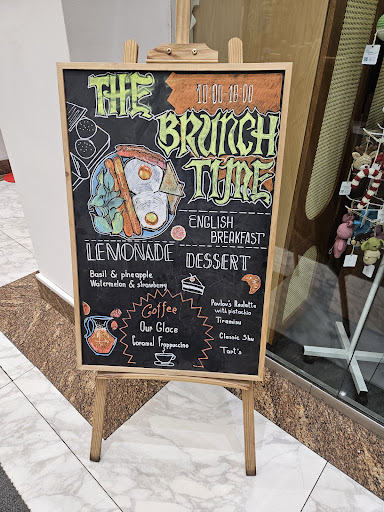 THE
10:00-18:00
BRUNCH
TIME
ENGLISH
BREAKFAST
LEMONADE
Basil & pineapple
Watermelon & strawberry
DESSERT
Pavlova Roulette
with pistachio
Tiramisu
Classic Shu
Tart's
Coffee
Our Glace
Caramel Frappuccino